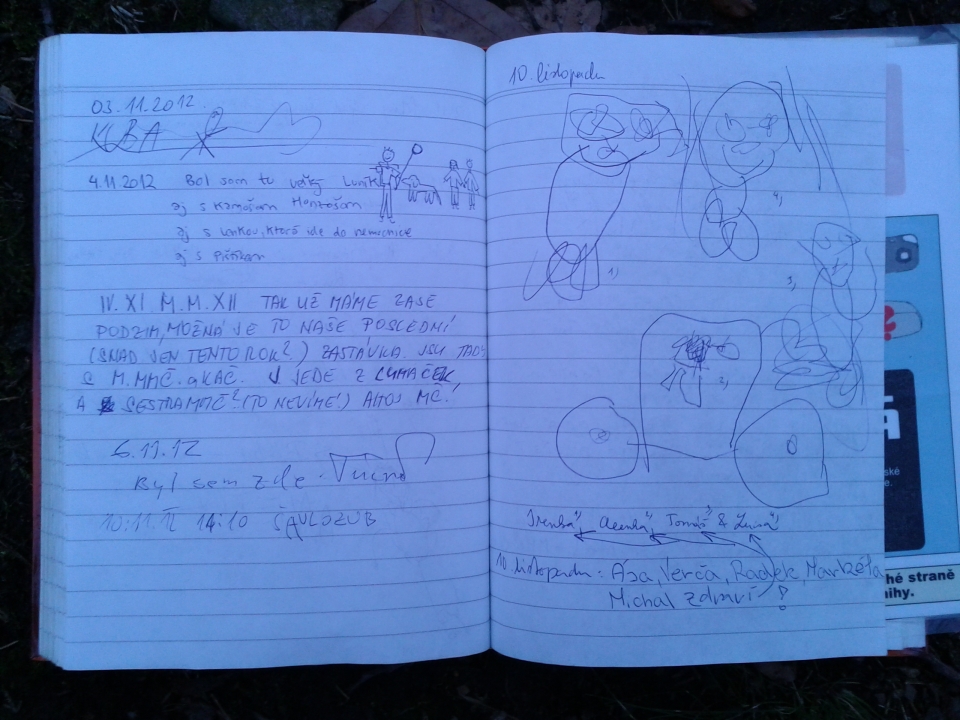 03.11.2012.
KUBA
4.11.2012 Bol som tu veľký
aj s kamošom Honzošom
aj s Lenkou, ktorá ide do nemocnice
aj s
IV. XI M.M.XII TAK UŽ MÁME ZASE
PODZIM, MOŽNÁ JE TO NAŠE POSLEDNÍ
(SNAD JEN TENTO ROK?) ZASTÁVKA. JSU TADY
S M. MAČ. a KAČ. JEDE Z
A SESTRA MAČ? (TO NEVÍME!) AHOJ MČ.
6.11.12
Byl sem zde.
10.11. 14:10
10. listopadu
1)
4)
3)
2)
Tomáš &
10. listopadu: Ása, Verča, Radek, Markéta
Michal zdraví!
ské
e.
hé straně
nihy.